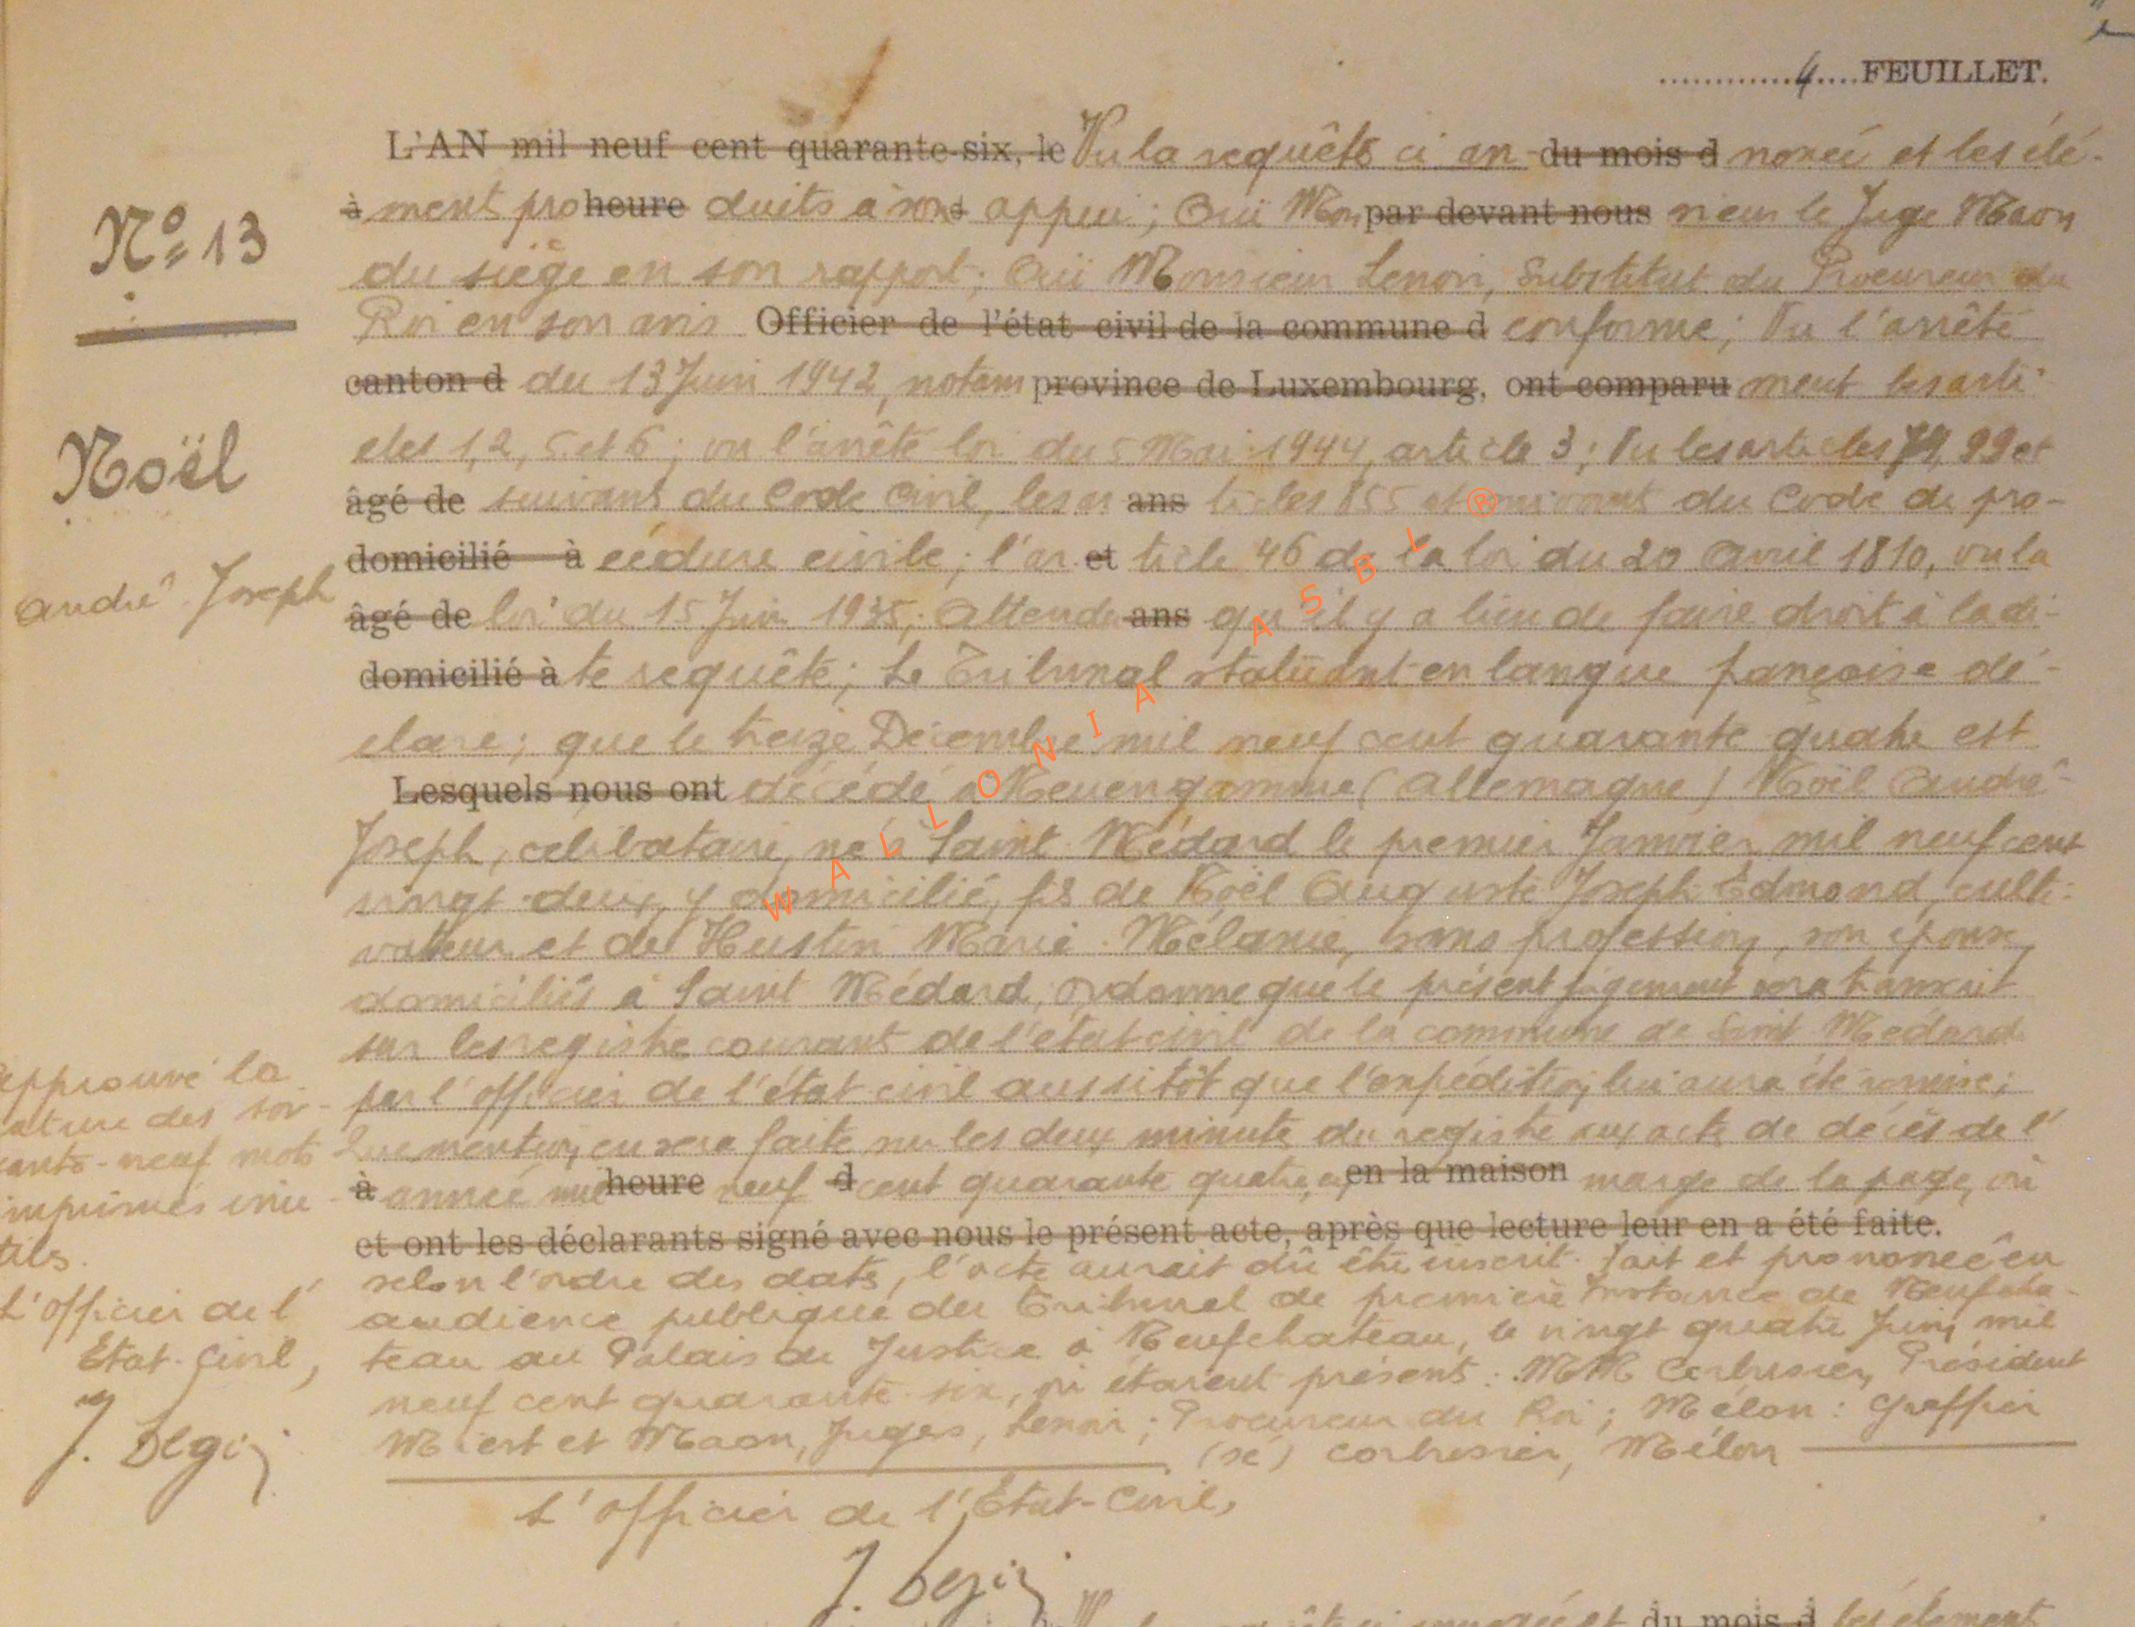 4 FEUILLET.
L'AN mil neuf cent quarante-six, le Vu la requête ci an du mois d nexée et les élé-
à ments pro heure duits à son appui ; Ouï Mon par devant nous sieur le Juge Maon
du siège en son rapport ; Ouï Monsieur Lenoir, Substitut du Procureur du
Roi en son avis Officier de l'état civil de la commune d conforme ; Vu l'arrêté
canton d du 13 Juin 1942, notam province de Luxembourg, ont comparu ment les arti-
cles 1, 2, 5 et 6 ; vu l'arrêté loi du 5 Mai 1944, article 3 ; Vu les articles 99 et
âgé de suivants du Code Civil, les ar ans ticles 855 et suivants du Code de pro-
domicilié à cédure civile ; l'ar et ticle 46 de la loi du 20 Avril 1810, vu la
âgé de loi du 15 Juin 1935 ; Attendu ans qu'il y a lieu de faire droit à la di-
domicilié à te requête ; Le Tribunal statuant en langue française dé-
clare ; que le treize Décembre mil neuf cent quarante quatre est
Lesquels nous ont décédé à Neuengamme (Allemagne) Noël André
Joseph, célibataire, né à Saint-Médard le premier Janvier mil neuf cent
vingt-deux, y domicilié, fils de Noël Auguste Joseph Edmond, culti-
vateur et de Hustin Marie-Mélanie, sans profession, son épouse,
domiciliés à Saint Médard ; Ordonne que le présent jugement sera transcrit
sur les registre courants de l'état-civil de la commune de Saint Médard
par l'officier de l'état civil aussitôt que l'expédition lui aura été remise ;
Que mention en sera faite sur les deux minute du registre aux acte de décès de l'
à année mil heure neuf d cent quarante quatre, en en la maison marge de la page, où
et ont les déclarants signé avec nous le présent acte, après que lecture leur en a été faite.
selon l'ordre des dates, l'acte aurait dû être inscrit. Fait et prononcé en
audience publique du Tribunal de première Instance de Neufchâ-
teau au Palais de Justice à Neufchateau, le vingt quatre Juin mil
neuf cent quarante-six, où étaient présents : MM Corbusier, Président
et Maon, Juges, Lenoir ; Procureur du Roi ; Mélon : Greffier
(sé) Corbusier, Mélon
L'officier de l'Etat-Civil,
N° 13
Noël
André-Joseph
Approuvé la
rature des soi-
xante-neuf mots
imprimés inu-
tils.
L'officier de l'
Etat-Civil,
WALLONIA ASBL ®
du mois d les élément